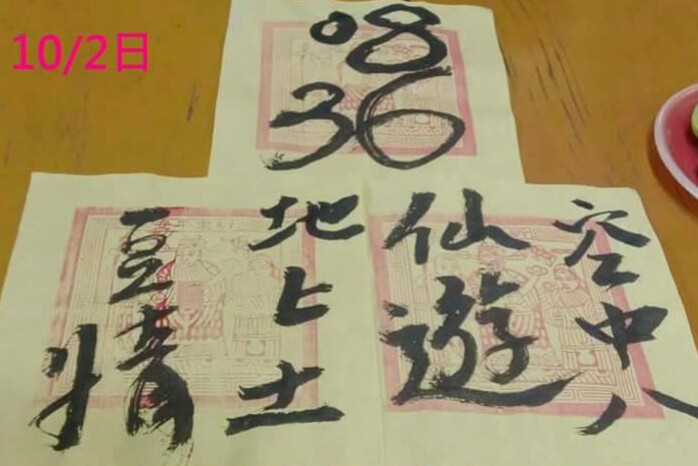 10/2日
08
36
空中八
仙遊
地上土
豆情